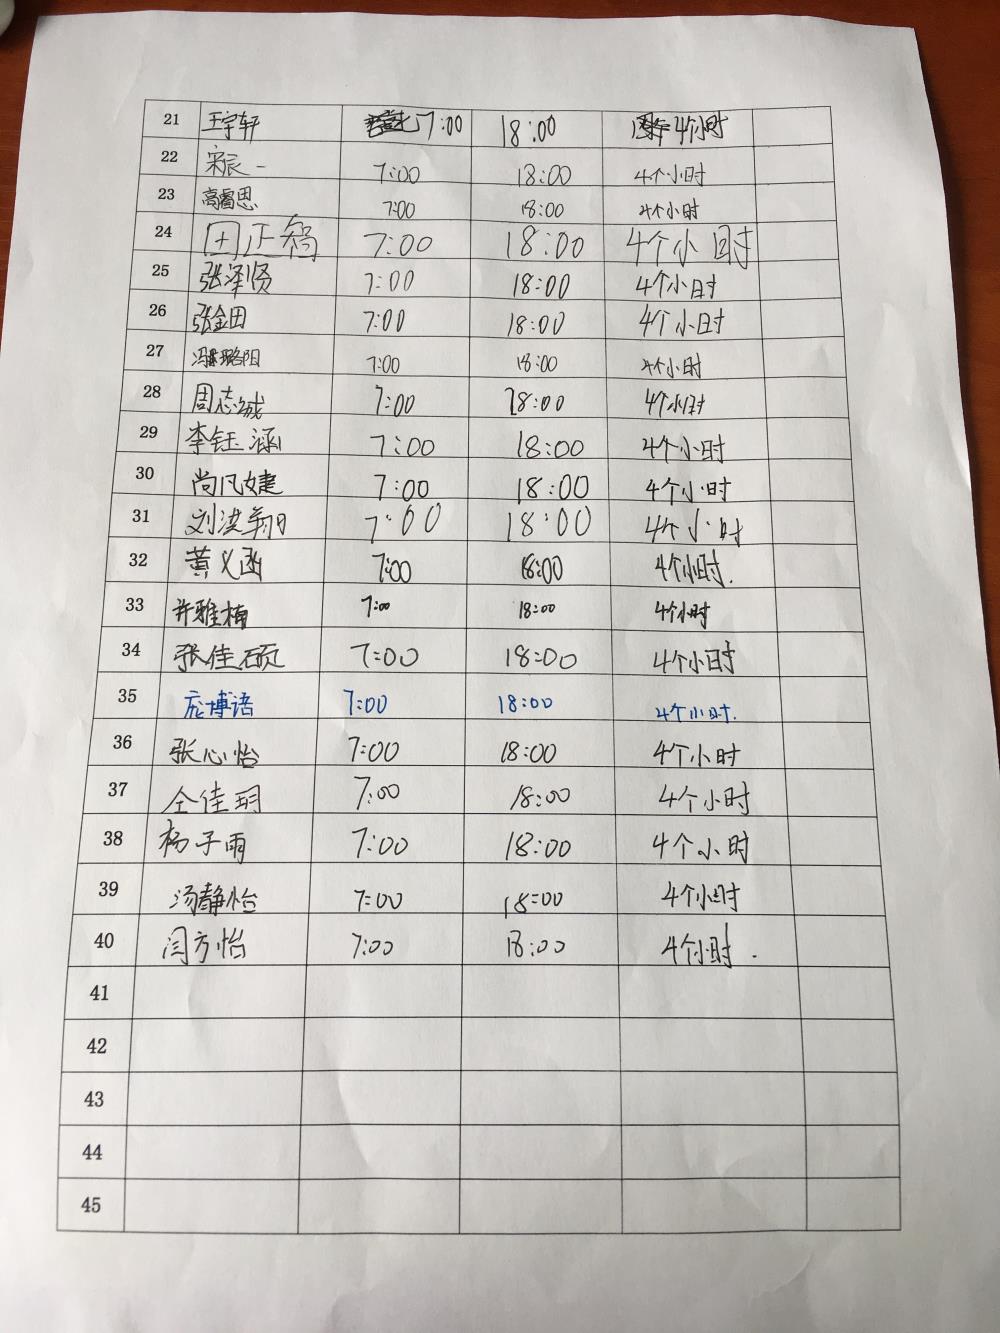 21 王宇轩 7:00 18:00 4个小时
22 宋辰一 7:00 18:00 4个小时
23 高睿思 7:00 18:00 4个小时
24 田正稻 7:00 18:00 4个小时
25 张泽贤 7:00 18:00 4个小时
26 张金田 7:00 18:00 4个小时
27 冯璐阳 7:00 18:00 4个小时
28 周志城 7:00 18:00 4个小时
29 李钰涵 7:00 18:00 4个小时
30 尚凡婕 7:00 18:00 4个小时
31 刘洪翔 7:00 18:00 4个小时
32 黄义函 7:00 18:00 4个小时.
33 许雅楠 7:00 18:00 4个小时
34 张佳硕 7:00 18:00 4个小时
35 庞博语 7:00 18:00 4个小时.
36 张心怡 7:00 18:00 4个小时
37 仝佳玥 7:00 18:00 4个小时
38 杨子雨 7:00 18:00 4个小时
39 汤静怡 7:00 18:00 4个小时
40 闫方怡 7:00 18:00 4个小时.
41
42
43
44
45